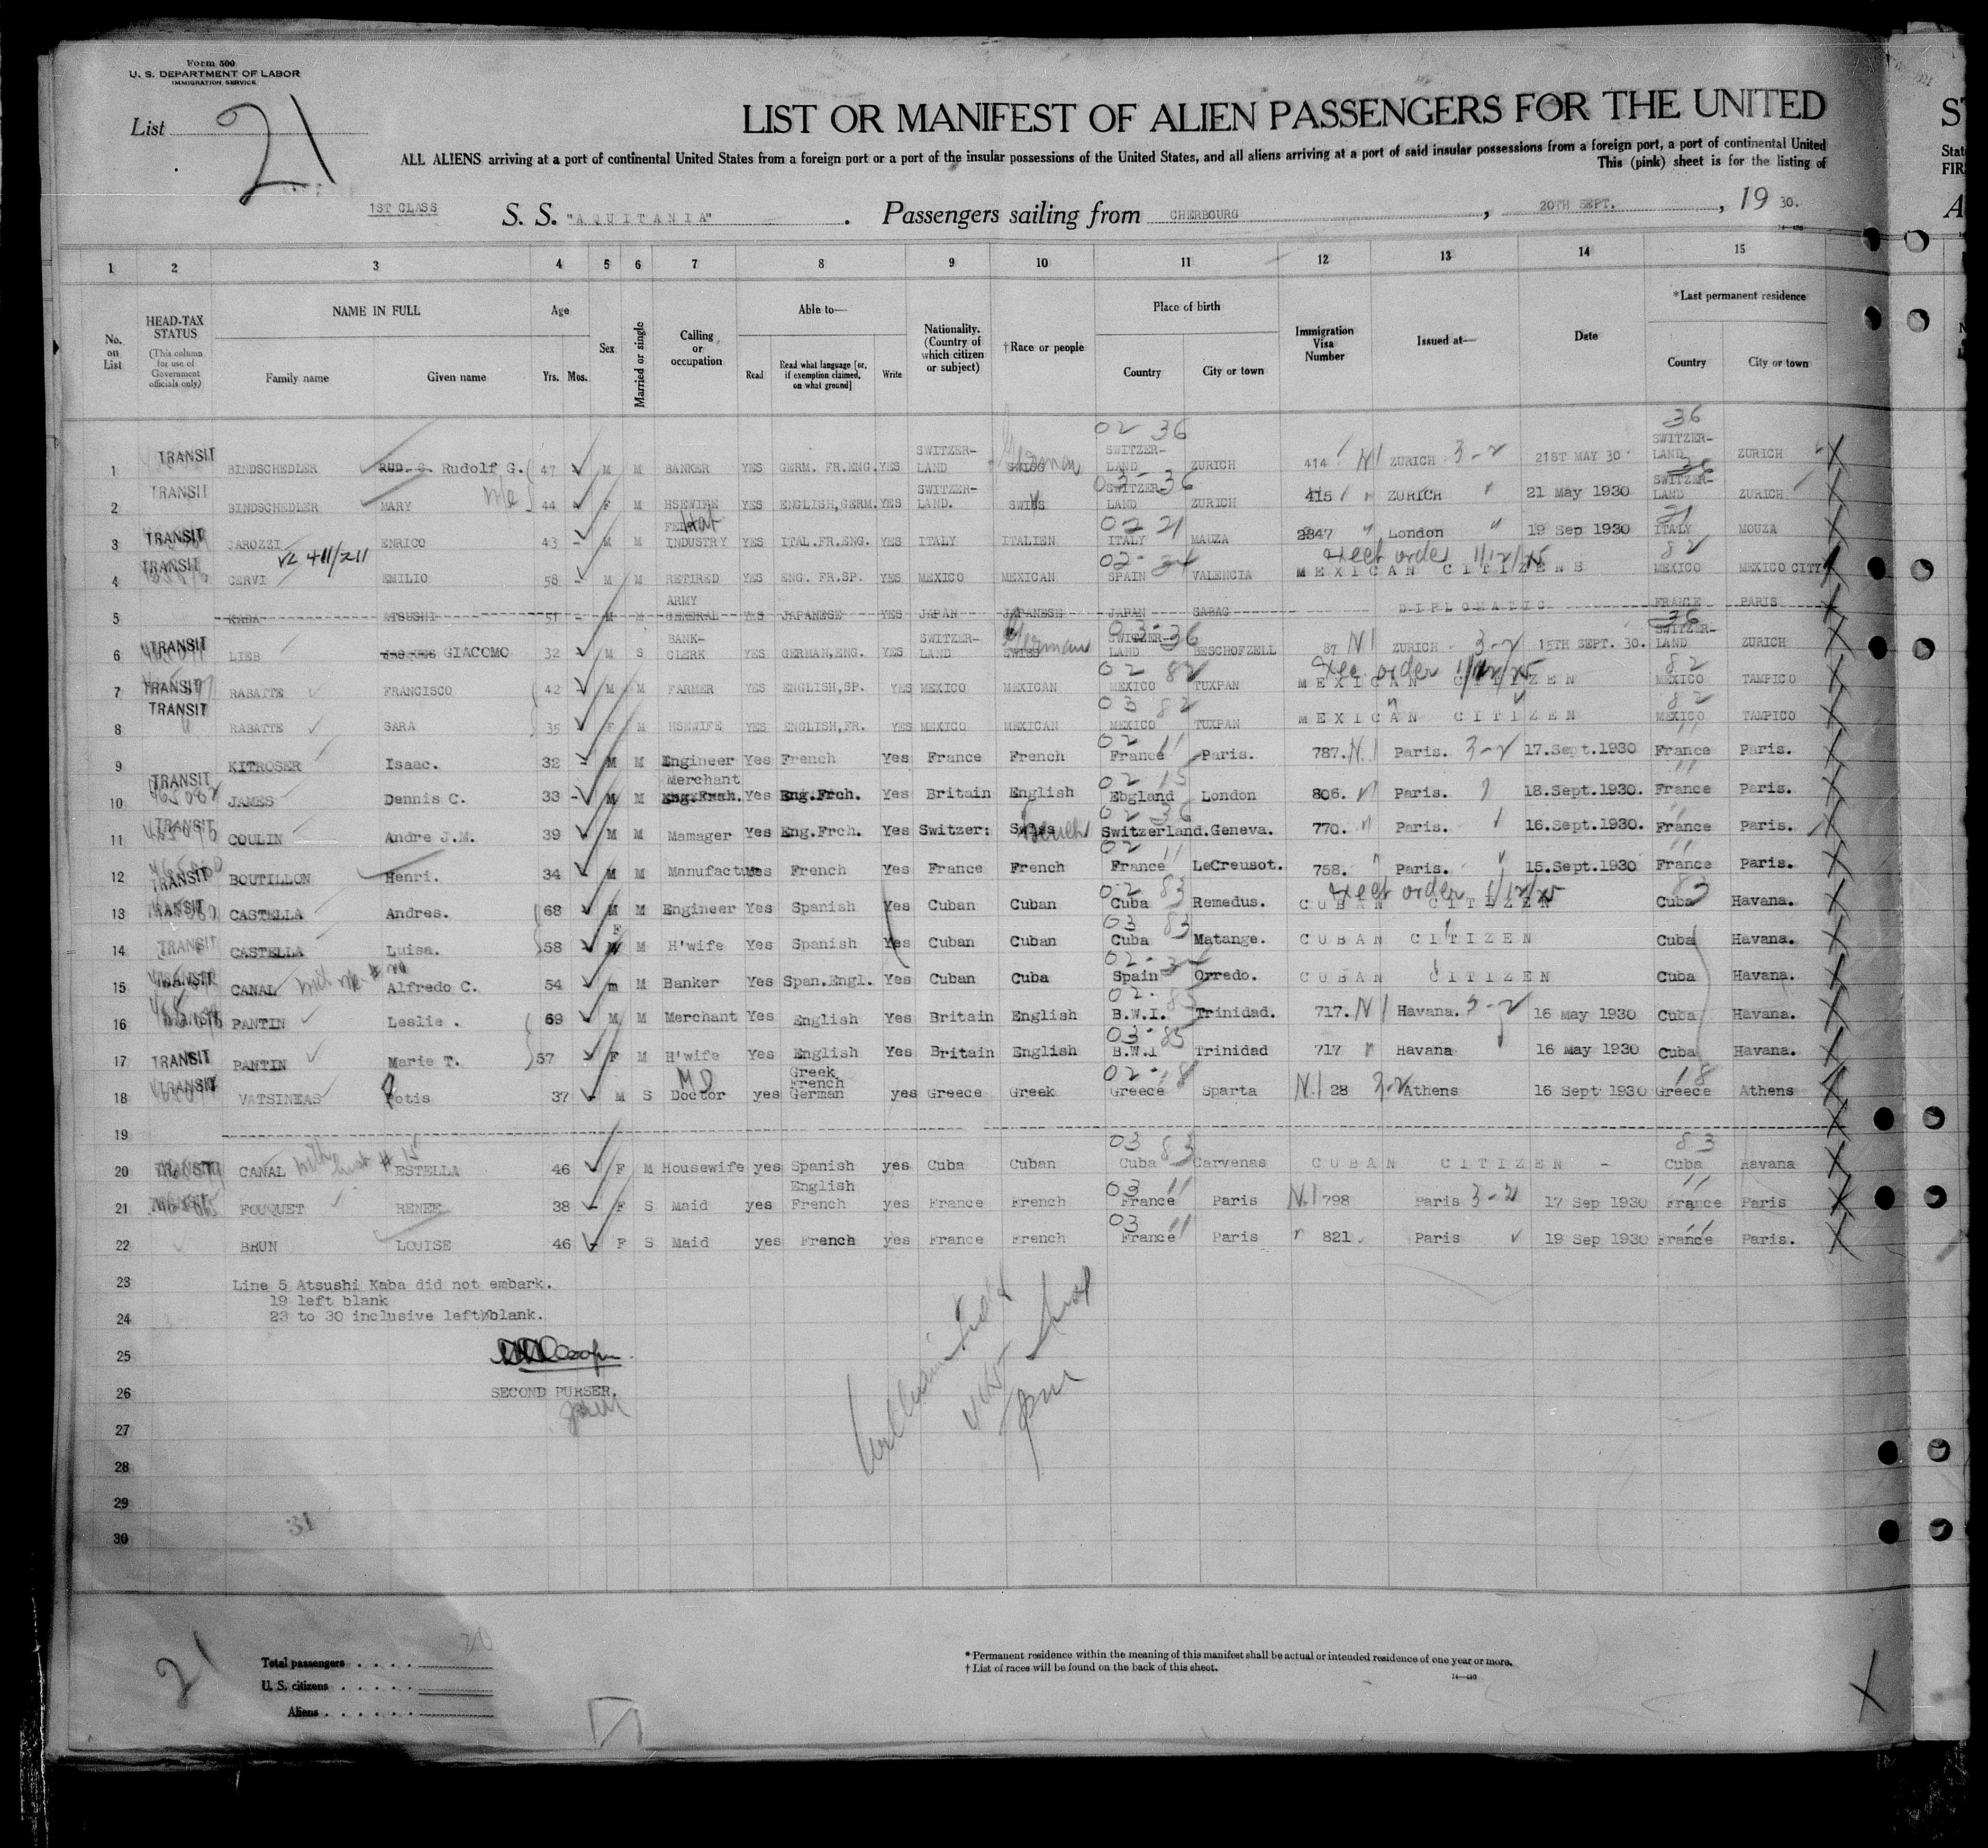 Form 500
U. S. DEPARTMENT OF LABOR
IMMIGRATION SERVICE
List 21
LIST OR MANIFEST OF ALIEN PASSENGERS FOR THE UNITED
ALL ALIENS arriving at a port of continental United States from a foreign port or a port of the insular possessions of the United States, and all aliens arriving at a port of said insular possessions from a foreign port, a port of continental United
This (pink) sheet is for the listing of
1ST CLASS S. S. "AQUITANIA". Passengers sailing from CHERBOURG, 20TH SEPT., 19 30.
1 2 3 4 5 6 7 8 9 10 11 12 13 14 15
No. on List
HEAD-TAX STATUS
(This column for use of Government officials only)
NAME IN FULL
Family name Given name
Age
Yrs. Mos.
Sex
Married or single
Calling or occupation
Able to—
Read Read what language [or, if exemption claimed, on what ground] Write
Nationality. (Country of which citizen or subject)
†Race or people
Place of birth
Country City or town
Immigration Visa Number
Issued at—
Date
*Last permanent residence
Country City or town
1 TRANSIT BINDSCHEDLER RUD. G. Rudolf G. 47 M M BANKER YES GERM. FR.ENG. YES SWITZER-LAND SWISS German 02 36 SWITZER-LAND ZURICH 414 NI ZURICH 3-2 21ST MAY 30 36 SWITZER-LAND ZURICH
2 TRANSIT BINDSCHEDLER MARY 44 F M HSEWIFE YES ENGLISH,GERM. YES SWITZER-LAND. SWISS 03-36 SWITZER-LAND ZURICH 415 " ZURICH " 21 May 1930 36 SWITZER-LAND ZURICH
3 TRANSIT CAROZZI ENRICO 43 - M M INDUSTRY YES ITAL.FR.ENG. YES ITALY ITALIEN 02 21 ITALY MAUZA 2847 " London " 19 Sep 1930 21 ITALY MOUZA
4 TRANSIT CERVI V2 411/211 EMILIO 58 - M M RETIRED YES ENG. FR.SP. YES MEXICO MEXICAN 02- SPAIN VALENCIA order 1/12/25 MEXICAN CITIZENS 82 MEXICO MEXICO CITY
5 KABA ATSUSHI 51 M M ARMY GENERAL YES JAPANESE YES JAPAN JAPANESE JAPAN SABAG DIPLOMATIC FRANCE PARIS
6 TRANSIT LIEB GIACOMO 32 M S BANK-CLERK YES GERMAN,ENG. YES SWITZER-LAND SWISS German 03-36 SWITZER-LAND BESCHOFZELL 87 NI ZURICH 3-2 15TH SEPT. 30. 36 SWITZER-LAND ZURICH
7 TRANSIT RABATTE FRANCISCO 42 M M FARMER YES ENGLISH,SP. YES MEXICO MEXICAN 02 82 MEXICO TUXPAN order 1/12/25 MEXICAN CITIZEN 82 MEXICO TAMPICO
8 TRANSIT RABATTE SARA 35 F M HSEWIFE YES ENGLISH,FR. YES MEXICO MEXICAN 03 82 MEXICO TUXPAN MEXICAN CITIZEN 82 MEXICO TAMPICO
9 KITROSER Isaac. 32 M M Engineer Yes French Yes France French 02 11 France Paris. 787. NI Paris. 3-2 17.Sept.1930 11 France Paris.
10 TRANSIT 465082 JAMES Dennis C. 33 - M M Merchant Yes Eng.Frch. Yes Britain English 02 15 Ebgland London 806. " Paris. " 18.Sept.1930. 11 France Paris.
11 TRANSIT COULIN Andre J.M. 39 M M Mamager Yes Eng.Frch. Yes Switzer: Swiss French 02 36 Switzerland. Geneva. 770. " Paris. 16.Sept.1930. 11 France Paris.
12 TRANSIT BOUTILLON Henri. 34 M M Manufacture Yes French Yes France French 02 11 France LeCreusot. 758. " Paris. 15.Sept.1930 11 France Paris.
13 TRANSIT CASTELLA Andres. 68 M M Engineer Yes Spanish Yes Cuban Cuban 02 83 Cuba Remedus. order 1/12/25 CUBAN CITIZEN 83 Cuba Havana.
14 TRANSIT CASTELLA Luisa. 58 F M H'wife Yes Spanish Yes Cuban Cuban 03 83 Cuba Matange. CUBAN CITIZEN Cuba Havana.
15 TRANSIT CANAL Alfredo C. 54 m M Banker Yes Span.Engl. Yes Cuban Cuba 02- Spain Orredo. CUBAN CITIZEN Cuba Havana.
16 PANTIN Leslie . 69 M M Merchant Yes English Yes Britain English 02- 85 B.W.I. Trinidad. 717. NI Havana. 3-2 16 May 1930 Cuba Havana.
17 TRANSIT PANTIN Marie T. 57 F M H'wife Yes English Yes Britain English 03- 85 B.W.I Trinidad 717 " Havana 16 May 1930 Cuba Havana.
18 TRANSIT VATSINEAS Potis 37 M S MD Doctor yes Greek French German yes Greece Greek 02-18 Greece Sparta NI 28 3-2 Athens 16 Sept 1930 18 Greece Athens
19
20 CANAL ESTELLA 46 F M Housewife yes Spanish yes Cuba Cuban 03 83 Cuba Carvenas CUBAN CITIZEN - 83 Cuba Havana
21 FOUQUET RENEE 38 F S Maid yes English French yes France French 03 11 France Paris NI 798 Paris 3-2 17 Sep 1930 11 France Paris
22 BRUN LOUISE 46 F S Maid yes French yes France French 03 11 France Paris " 821 Paris 19 Sep 1930 11 France Paris.
23 Line 5 Atsushi Kaba did not embark.
19 left blank
24 23 to 30 inclusive left blank.
25
26 SECOND PURSER.
27
28
29
30
31
21
Total passengers . . . . 20
U. S. citizens . . . . .
Aliens . . . . . .
* Permanent residence within the meaning of this manifest shall be actual or intended residence of one year or more.
† List of races will be found on the back of this sheet.